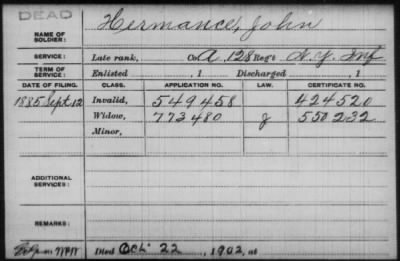 DEAD
NAME OF SOLDIER: Hermance, John
SERVICE: Late rank, Co. A, 128 Reg't N.Y. Inf
TERM OF SERVICE: Enlisted , 1 Discharged , 1
DATE OF FILING. CLASS. APPLICATION NO. LAW. CERTIFICATE NO.
1885 Sept. 12 Invalid, 549458 424520
Widow, 773480 g 550232
Minor,
ADDITIONAL SERVICES:
REMARKS:
Died Oct. 22, 1902, at